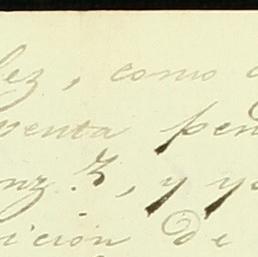 lez, como
venta pen
nz. 3, y y
icion de